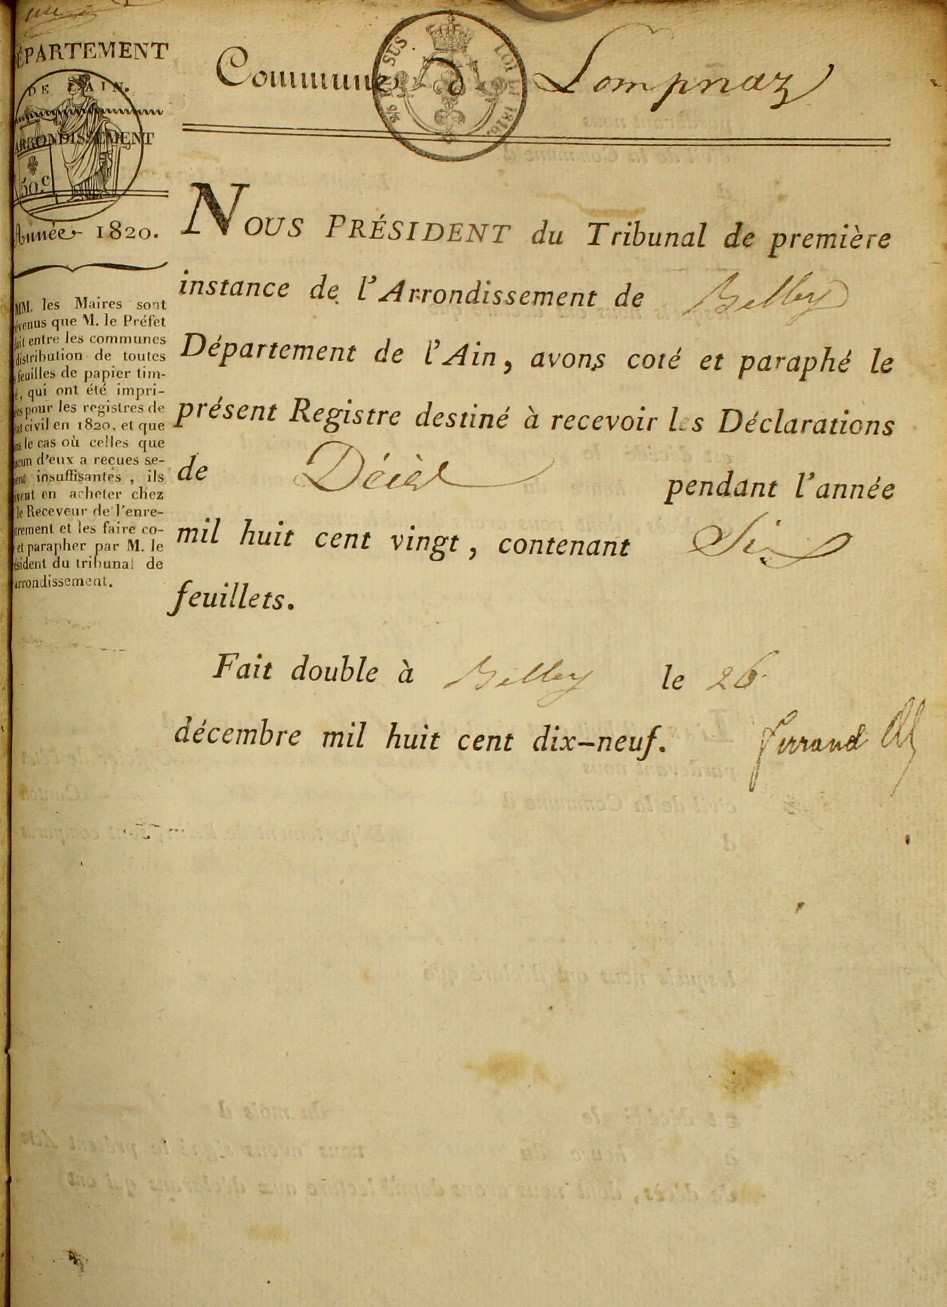 ÉPARTEMENT
DE L'AIN.
ARRONDISSEMENT
50.c
Année 1820.
MM. les Maires sont
venus que M. le Préfet
ait entre les communes
distribution de toutes
feuilles de papier tim-
é, qui ont été impri-
es pour les registres de
at civil en 1820, et que
ns le cas où celles que
cun d'eux a recues se-
ent insuffisantes, ils
vent en acheter chez
le Receveur de l'enre-
trement et les faire co-
et parapher par M. le
ésident du tribunal de
arrondissement.
Commune D Lompnaz
SUS LOI DE 1816.
NOUS PRÉSIDENT du Tribunal de première
instance de l'Arrondissement de Belley
Département de l'Ain, avons coté et paraphé le
présent Registre destiné à recevoir les Déclarations
de Décès pendant l'année
mil huit cent vingt, contenant Six
feuillets.
Fait double à Belley le 26
décembre mil huit cent dix-neuf. ferrand